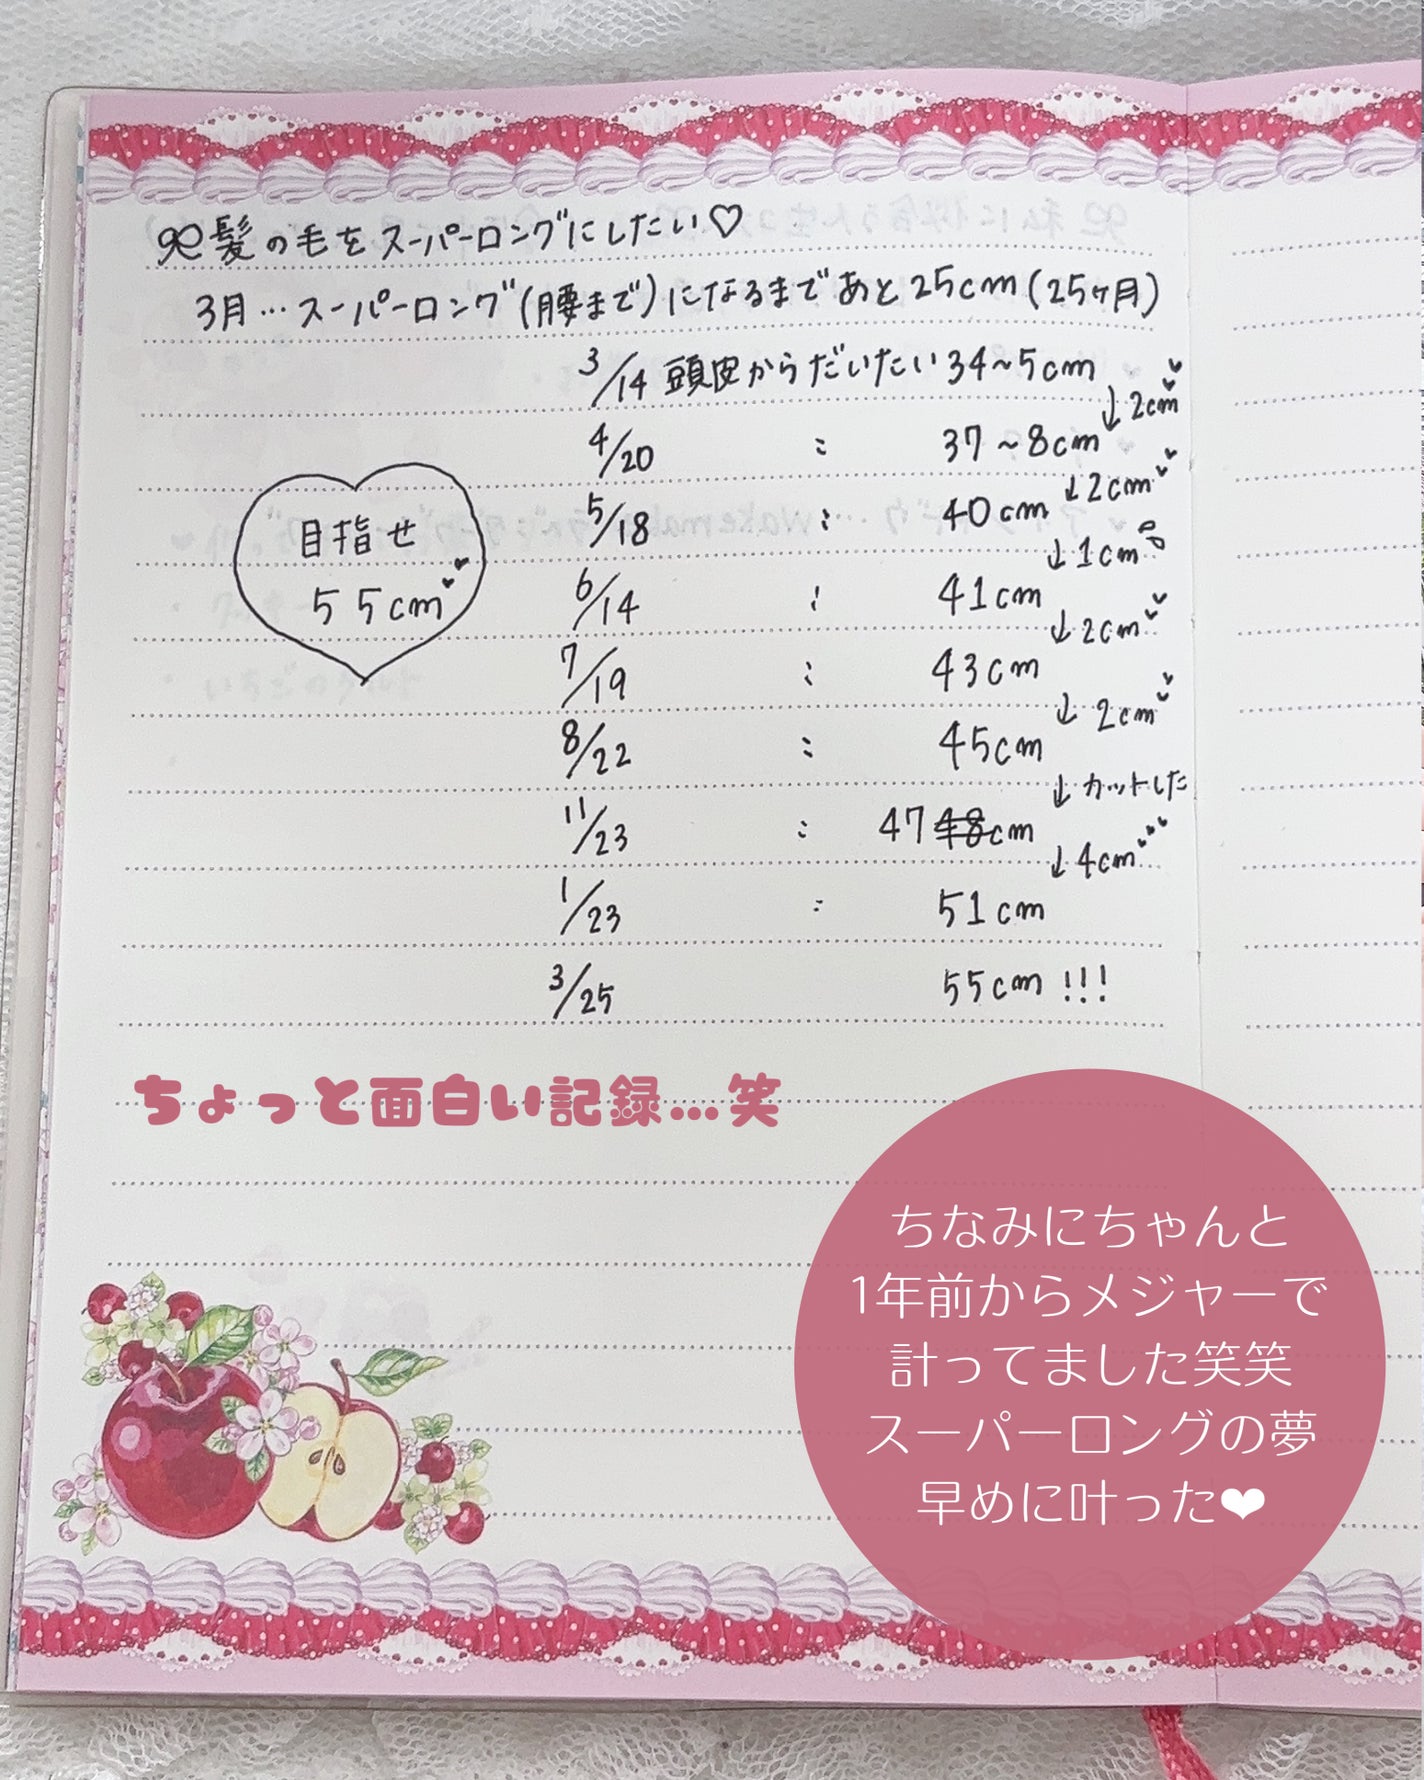 髪の毛をスーパーロングにしたい♡
3月…スーパーロング(腰まで)になるまであと25cm(25ヶ月)
3/14 頭皮からだいたい34~5cm
↓2cm
4/20 : 37~8cm
↓2cm
5/18 : 40cm
↓1cm
6/14 : 41cm
↓2cm
7/19 : 43cm
↓2cm
8/22 : 45cm
↓カットした
11/23 : 47 48cm
↓4cm
1/23 : 51cm
3/25 55cm!!!
目指せ
55cm
ちょっと面白い記録...笑
ちなみにちゃんと
1年前からメジャーで
計ってました笑笑
スーパーロングの夢
早めに叶った❤